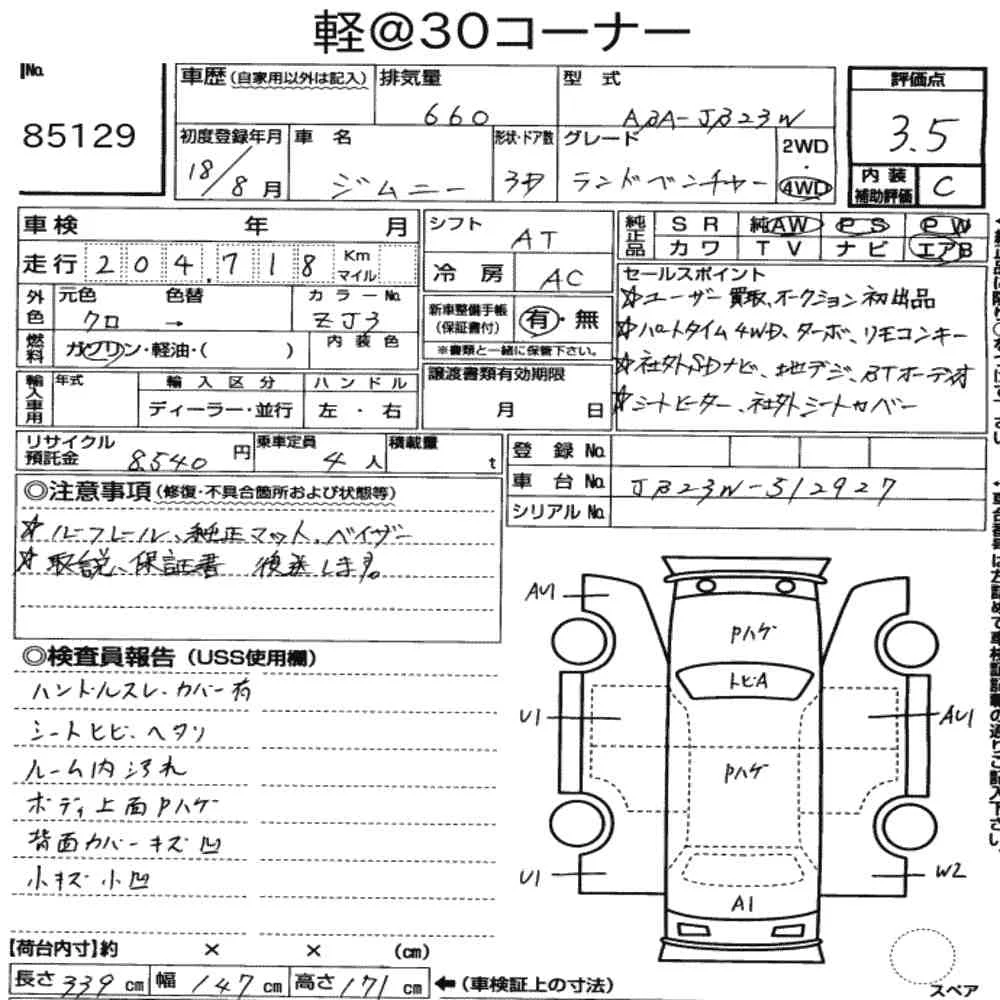 軽@30コーナー
No.
85129
車歴 (自家用以外は記入)
排気量
660
型 式
ABA-JB23W
評価点
3.5
内装補助評価
C
初度登録年月
18/8月
車 名
ジムニー
形状・ドア数
3D
グレード
ランドベンチャー
2WD
・
4WD
車検 年 月
走行 204,718 Km マイル
外色
元色
クロ
→
色替
カラーNo.
ZJ3
燃料
ガソリン・軽油・( )
内装色
シフト
AT
冷房
AC
新車整備手帳(保証書付)
有・無
※書類と一緒に保管下さい。
純正品
SR 純AW PS PW
カワ TV ナビ エアB
セールスポイント
☆ユーザー買取、オークション初出品
☆パートタイム4WD、ターボ、リモコンキー
☆社外SDナビ、地デジ、BTオーディオ
☆シートヒーター、社外シートカバー
輸入車用
年式
輸入区分
ディーラー・並行
ハンドル
左・右
譲渡書類有効期限
月 日
リサイクル預託金
8,540円
乗車定員
4人
積載量
t
登録No.
車台No.
JB23W-512927
シリアルNo.
◎注意事項 (修復・不具合箇所および状態等)
☆ルーフレール、純正マット、ベイザー
☆取説、保証書 後送します。
◎検査員報告 (USS使用欄)
ハンドルスレ・カバー有
シートヒビ、ヘタリ
ルーム内汚れ
ボディ上面Pハゲ
背面カバーキズ凹
小キズ小凹
AU1
Pハゲ
トビA
U1
AU1
Pハゲ
U1
W2
A1
スペア
【荷台内寸】約 × × (cm)
長さ 339 cm 幅 147 cm 高さ 171 cm ←(車検証上の寸法)